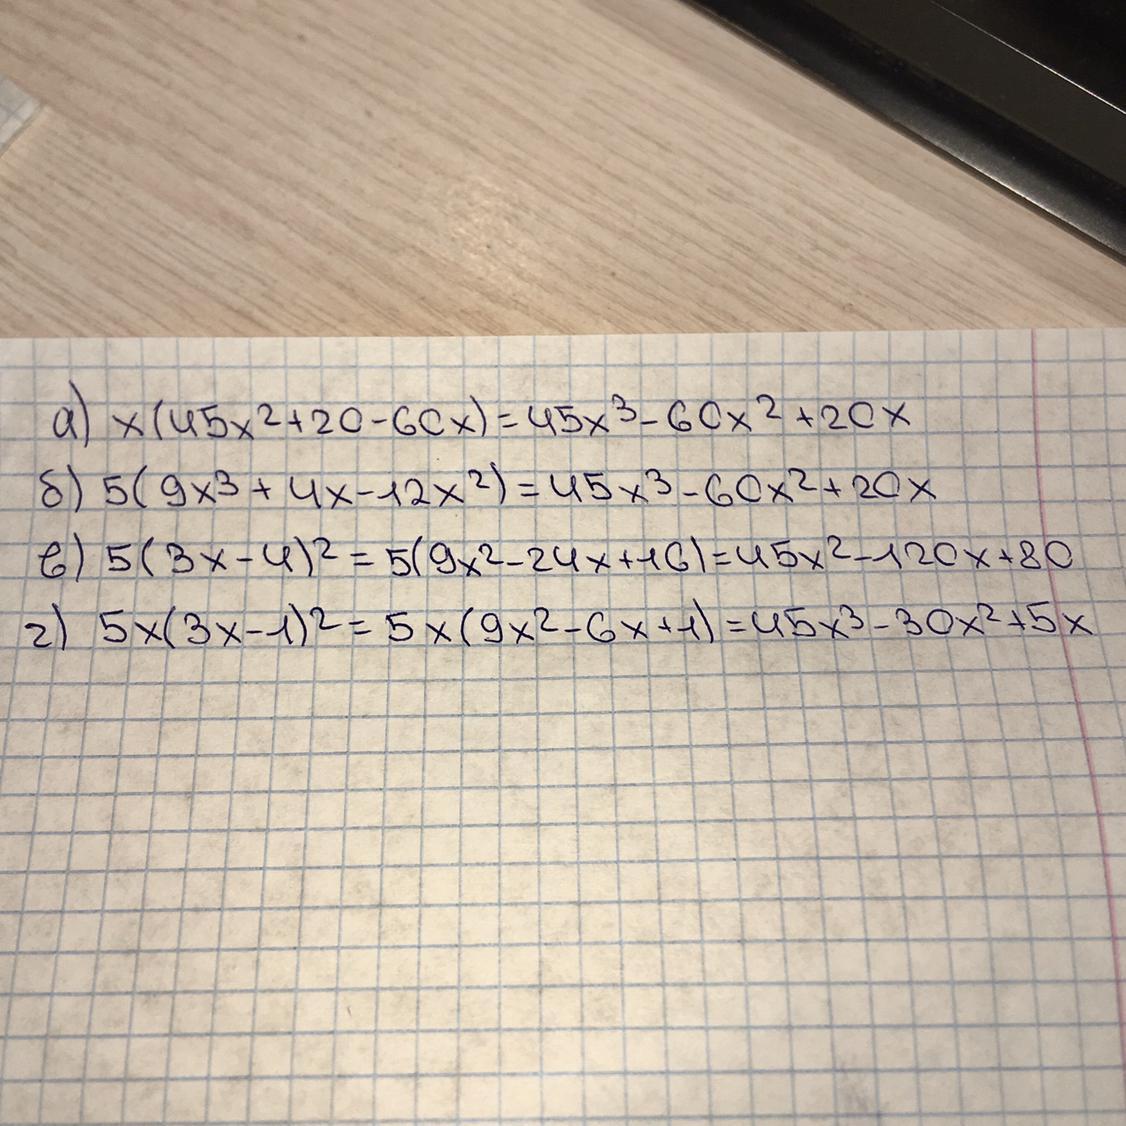 а) x(45x²+20-60x)=45x³-60x²+20x
б) 5(9x³+4x-12x²)=45x³-60x²+20x
в) 5(3x-4)²=5(9x²-24x+16)=45x²-120x+80
г) 5x(3x-1)²=5x(9x²-6x+1)=45x³-30x²+5x